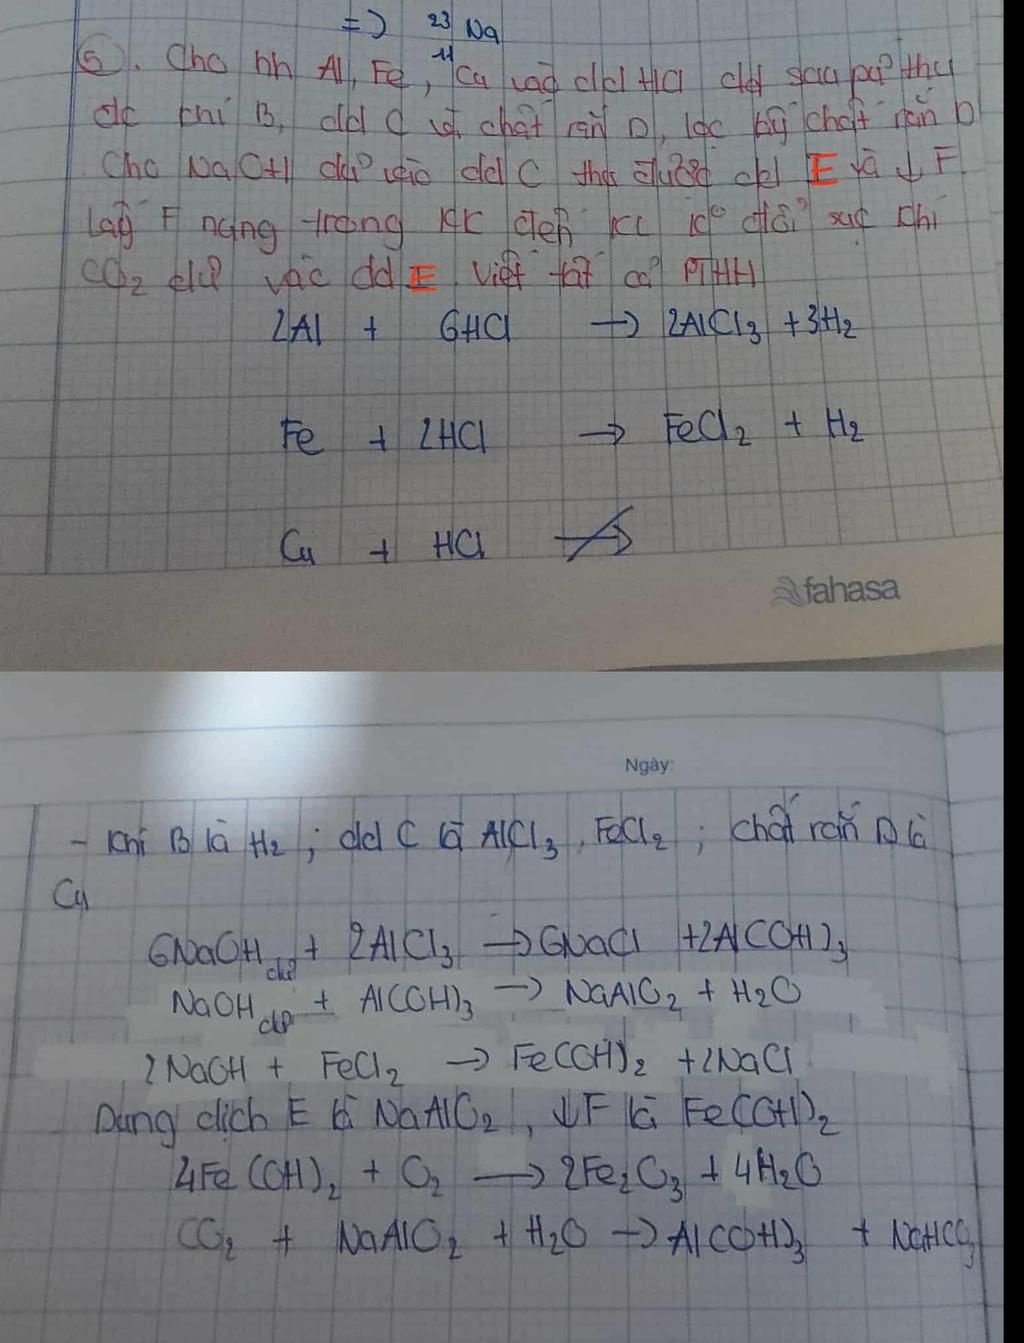 => ²³₁₁Na
⑤. Cho hh Al, Fe, Cu vào dd HCl dư sau pứ thu
đc khí B, dd C và chất rắn D, lọc bỏ chất rắn D
Cho NaOH dư vào dd C thu được dd E và ↓ F.
Lấy F nung trong KK đến KL kº đổi sục khí
CO₂ dư vào dd E. Viết tất cả PTHH
2Al + 6HCl → 2AlCl₃ + 3H₂
Fe + 2HCl → FeCl₂ + H₂
Cu + HCl ↛
fahasa
Ngày:
- Khí B là H₂ ; dd C là AlCl₃, FeCl₂ ; chất rắn D là
Cu
6NaOH dư + 2AlCl₃ → 6NaCl + 2Al(OH)₃
NaOH dư + Al(OH)₃ → NaAlO₂ + H₂O
2NaOH + FeCl₂ → Fe(OH)₂ + 2NaCl
Dung dịch E là NaAlO₂, ↓ F là Fe(OH)₂
4Fe(OH)₂ + O₂ → 2Fe₂O₃ + 4H₂O
CO₂ + NaAlO₂ + H₂O → Al(OH)₃ + NaHCO₃